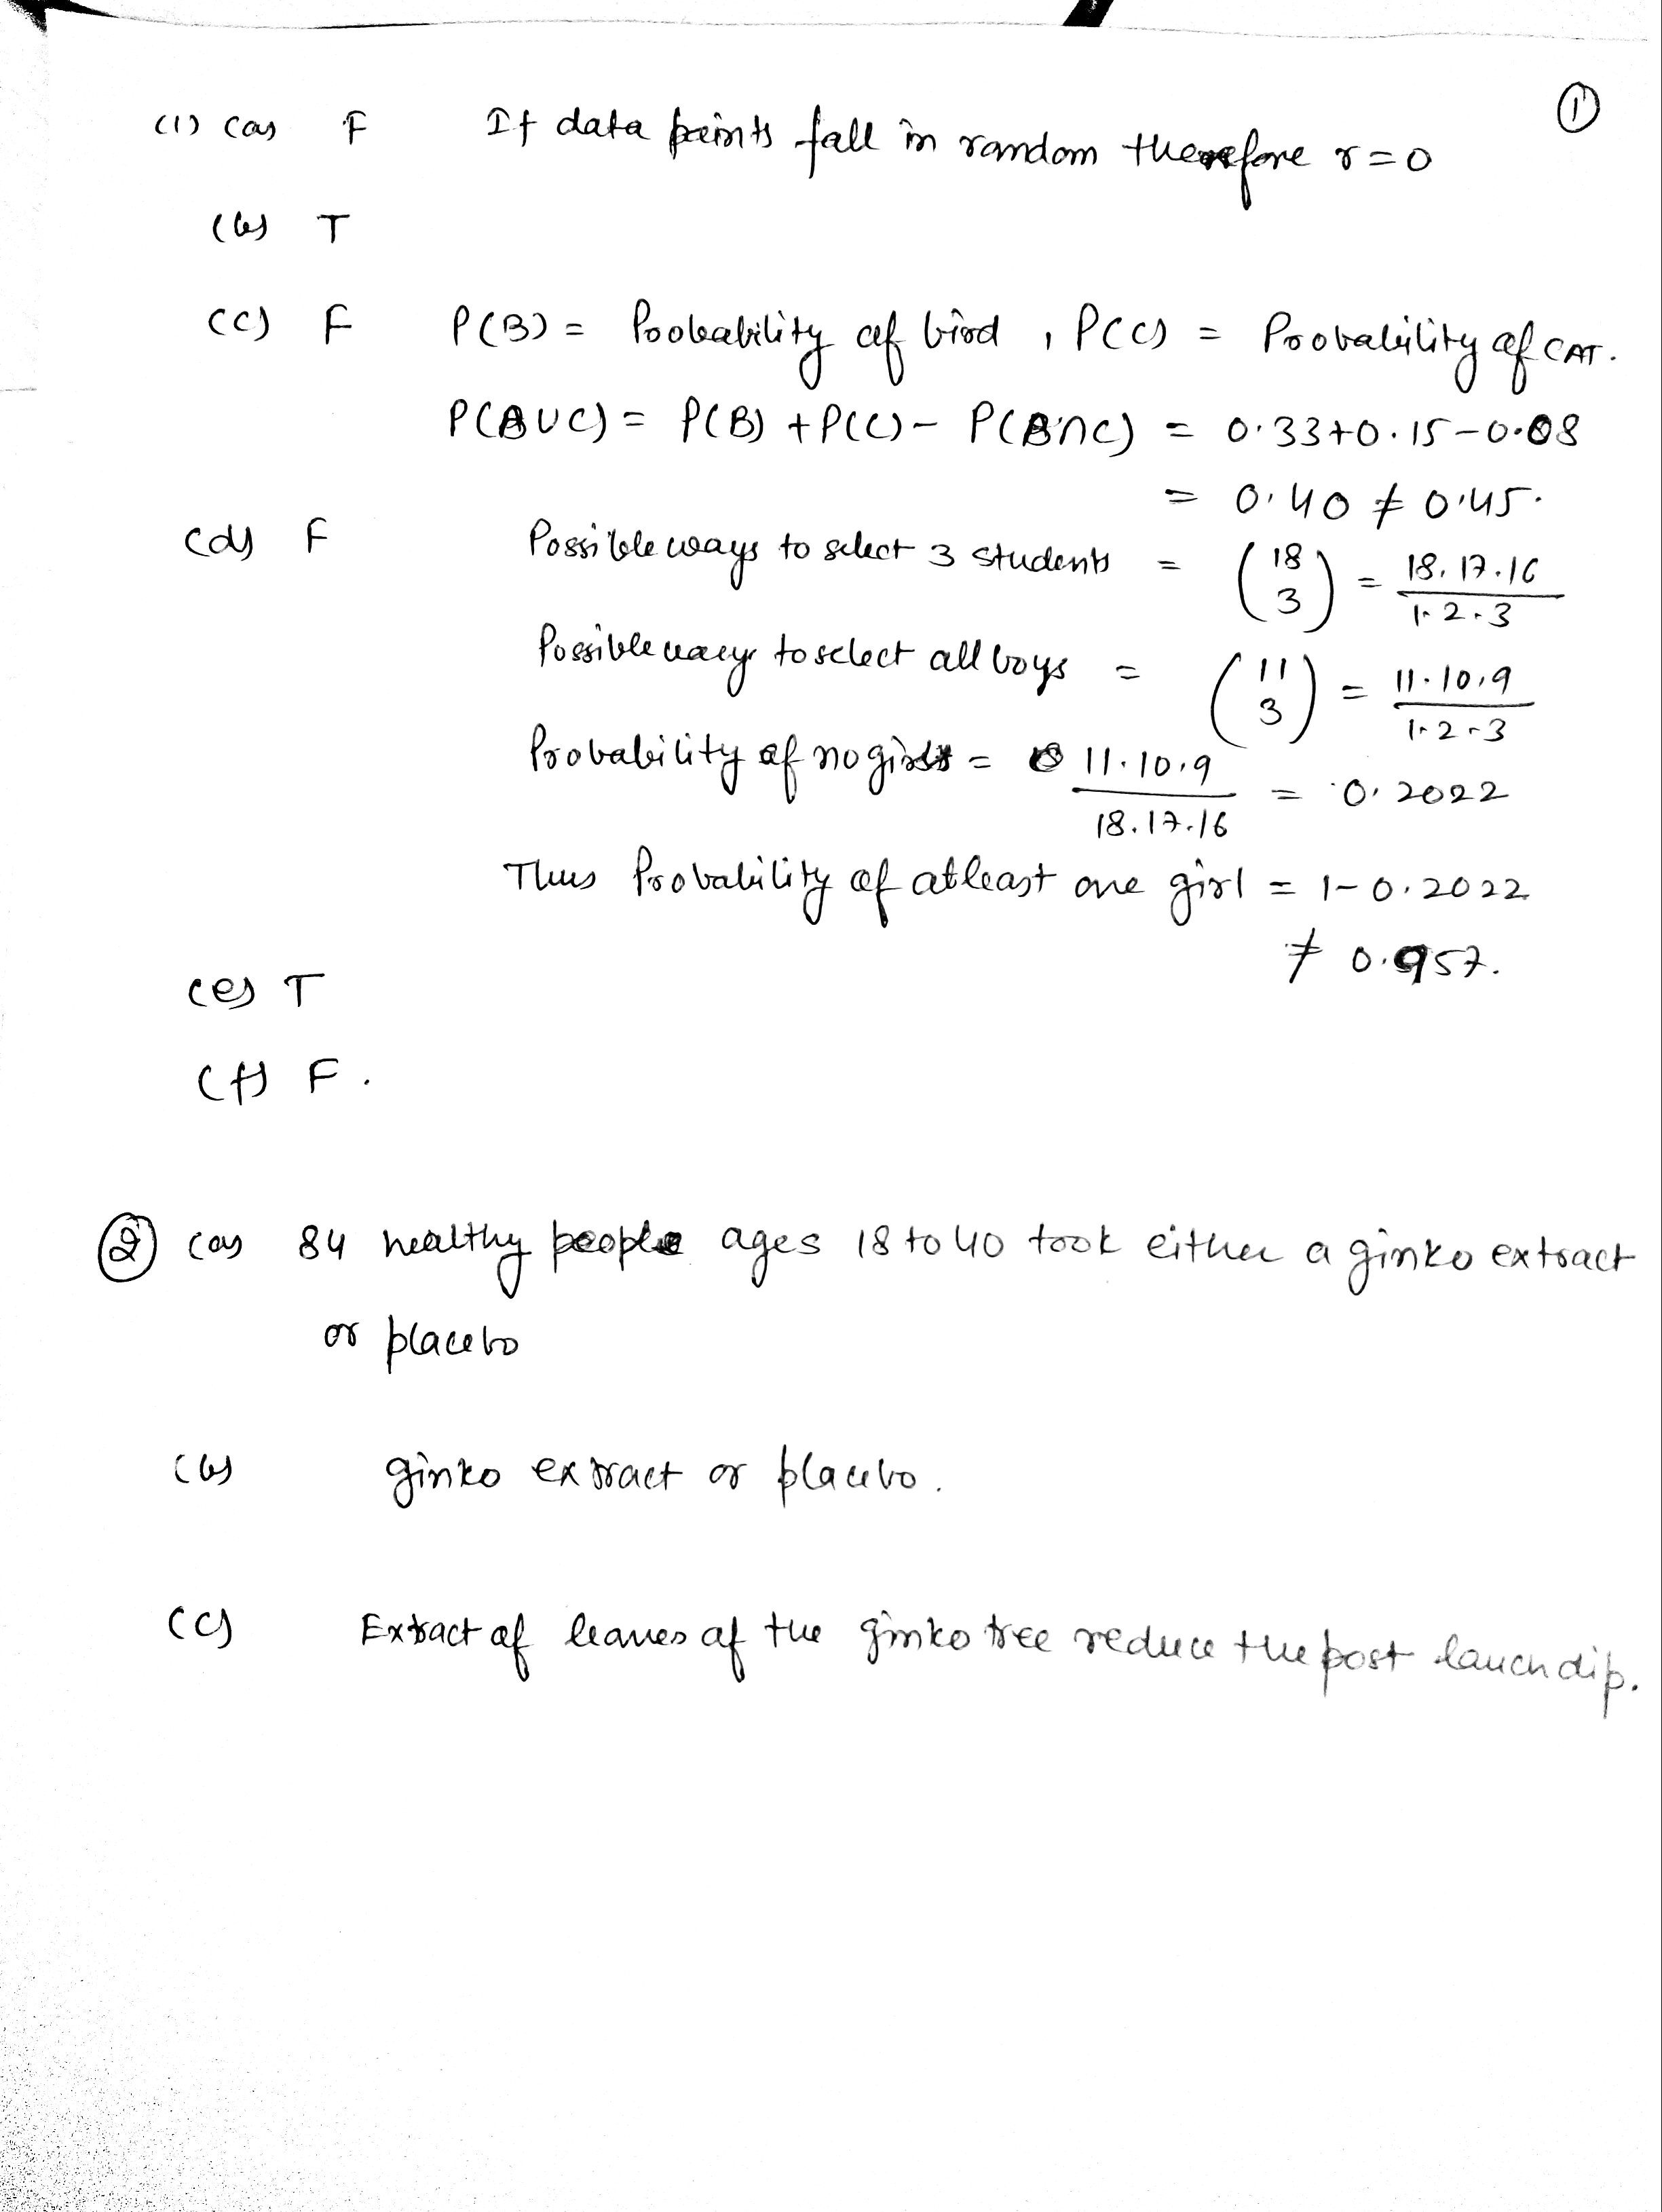 ①
(1) (a) F If data points fall in random therefore r=0
(b) T
(c) F P(B) = Probability of bird , P(C) = Probability of CAT.
P(BUC) = P(B) + P(C) - P(B∩C) = 0.33+0.15-0.08
= 0.40 ≠ 0.45.
(d) F Possible ways to select 3 students = (18 3) = 18.17.16 / 1.2.3
Possible ways to select all boys = (11 3) = 11.10.9 / 1.2.3
Probability of no girls = 11.10.9 / 18.17.16 = 0.2022
Thus Probability of atleast one girl = 1-0.2022
≠ 0.957.
(e) T
(f) F.
② (a) 84 healthy people ages 18 to 40 took either a ginko extract
or placebo
(b) ginko extract or placebo.
(c) Extract of leaves of the ginko tree reduce the post lauch dip.